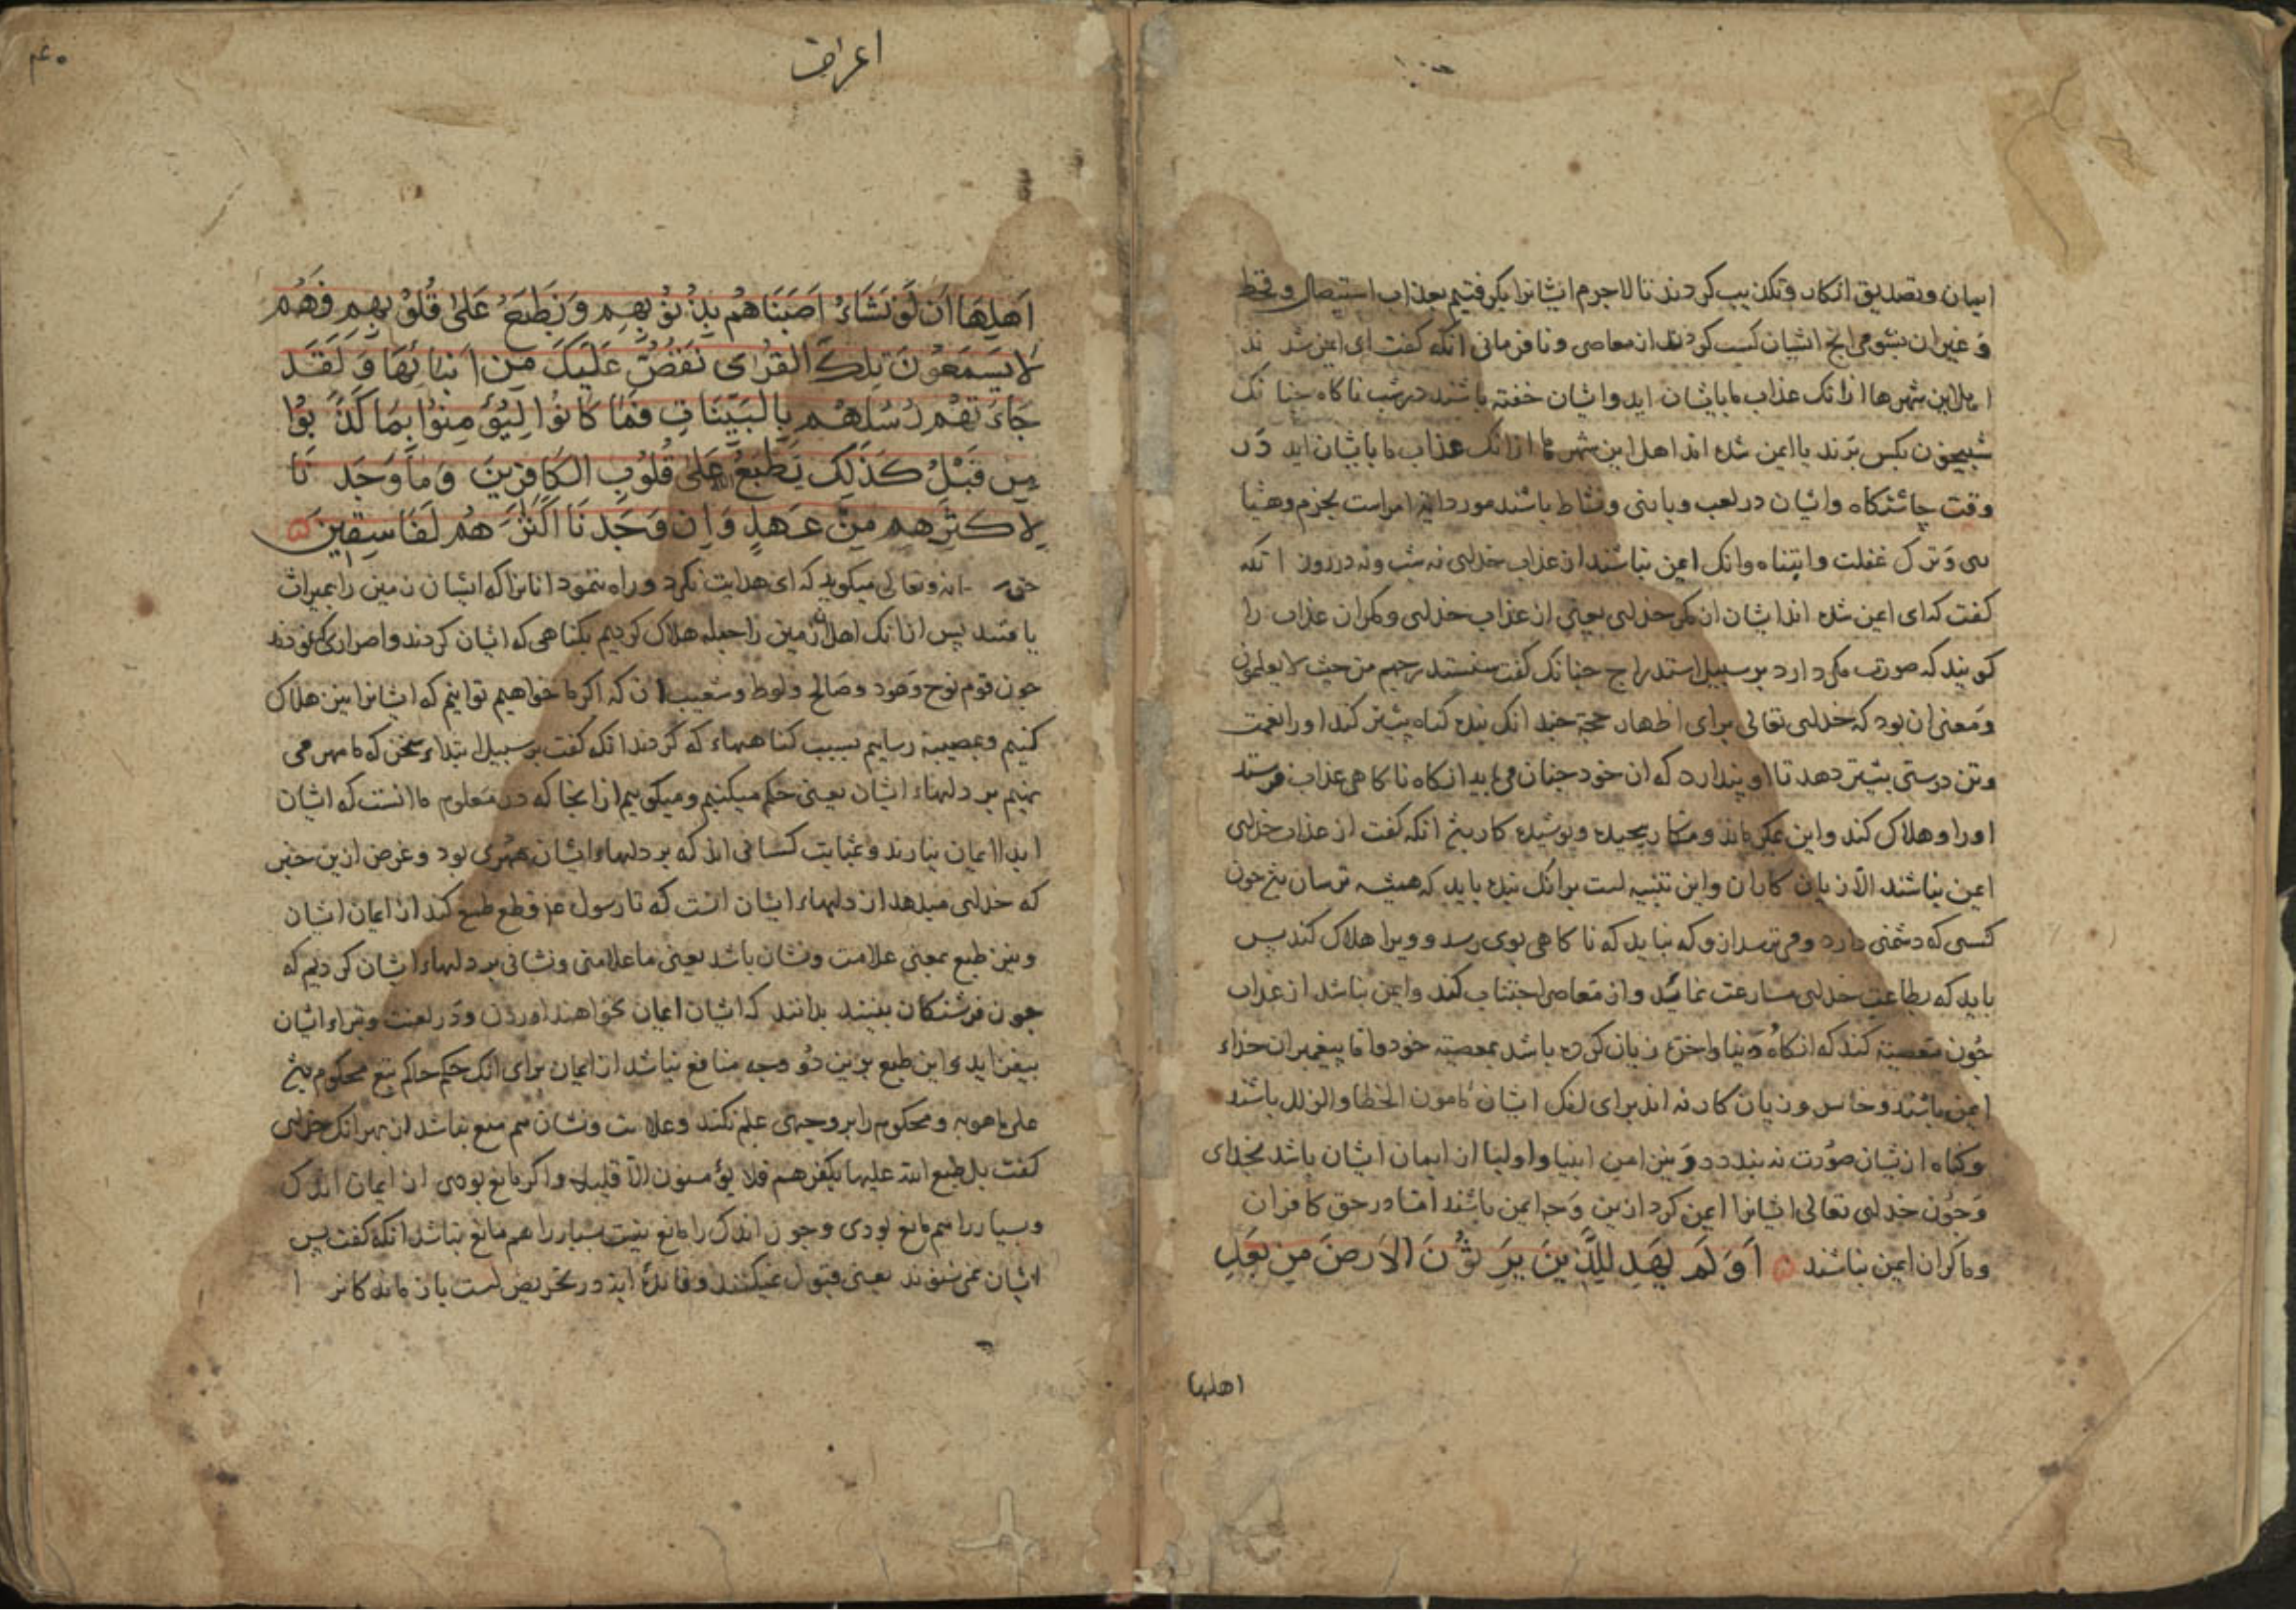 ایمان و تصدیق انکار و تکذیب کردند تا لاجرم ایشانرا بکرفتیم بعذاب استیصال و قحط
و غیر ان بشومی انچ ایشان کسب کردند از معاصی و نافرمانی انکه کفت ای ایمن شد ند
اهل این شهرها ازانک عذاب ما بایشان اید و ایشان خفته باشند در شب ناکاه جنا نک
شبیخون بکس برند یا ایمن شده اند اهل این شهر ها ازانک عذاب ما بایشان اید در
وقت چاشتکاه و ایشان در لعب و بازی و نشاط باشند امراست بحزم و هشیا
ری و ترک غفلت و انتباه وانک ایمن نباشند از عذاب خدای نه شب و نه در روز انکه
کفت که ای ایمن شده اند ایشان از مکر خدای یعنی از عذاب خدای و مکر ان عذاب را
کویند که صورت مکر دارد بر سبیل استدراج جنانک کفت سنستدرجهم من حیث لا یعلمون
و معنی ان بود که خدای تعالی برای اظهار حجة جند انک بنده کناه بیشتر کند او را نعمت
و تن درستی بیشتر دهد تا او پندارد که ان خود جنان می باید انکاه ناکاهی عذاب فرستد
او را و هلاک کند و این بمکر ماند و پوشیده کار بیخ انکه کفت از عذاب خدای
ایمن نباشند الا زیان کاران و این تنبیه است برانک بنده باید که همیشه ترسان بیخ جون
کسی که دشمنی دارد و می ترسد ازو که نباید که ناکاهی بوی رسد و ویرا هلاک کند پس
باید که بطاعت خدای مسارعت نماید و از معاصی اجتناب کند و ایمن نباشد از عذاب
جون معصیة کند که انکاه دنیا و اخرة زیان کرده باشد بمعصیة خود و اما پیغمبران خداء
ایمن باشند و خاسر و زیان کار نه اند برای انک ایشان مامون الخطا و الزلل باشند
و کناه ازیشان صورت نه بندد و نیز امن انبیا و اولیا از ایمان ایشان باشد بخدای
و جون خدای تعالی ایشانرا ایمن کرد ازین وجه ایمن باشند اما در حق کافران
و ماکران ایمن نباشند اَوَ لَم یَهدِ لِلَّذینَ یَرِثُونَ الاَرضَ مِن بَعدِ
اهلها
اعراف
اَهلِهَا اَن لَو نَشَاءُ اَصَبنَاهُم بِذُنُوبِهِم وَنَطبَعُ عَلیٰ قُلُوبِهِم فَهُم
لَا یَسمَعُونَ تِلكَ القُرٰی نَقُصُّ عَلَیكَ مِن اَنبَائِهَا وَلَقَد
جَاءَتهُم رُسُلُهُم بِالبَیِّنَاتِ فَمَا كَانُوا لِیُؤمِنُوا بِمَا كَذَّبُوا
مِن قَبلُ كَذٰلِكَ یَطبَعُ الله عَلیٰ قُلُوبِ الكَافِرِینَ وَمَا وَجَدنَا
لِاَكثَرِهِم مِن عَهدٍ وَاِن وَجَدنَا اَكثَرَهُم لَفَاسِقِینَ
حق انه و تعالی میکوید که ای هدایت نکرد و راه ننمود انانرا که ایشان زمین را بمیراث
یافتند پس ازانک اهل ان زمین را جمله هلاک کردیم بکناهی که ایشان کردند و اصرار
جون قوم نوح و هود و صالح و لوط و شعیب ان که اکر ما خواهیم توانیم که ایشانرا نیز هلاک
کنیم و بمصیبة رسانیم بسبب کناههاء که کردند انکه کفت بر سبیل ابتداء سخن که ما مهر می
نهیم بر دلهاء ایشان یعنی حکم میکنیم و میکوییم ازانجا که در معلوم ما انست که ایشان
ابدا ایمان نیارند و بمثابت کسانی اند که بر دلهاء ایشان مهری بود و غرض ازین خبر
که خدای میدهد از دلهاء ایشان انست که تا رسول عم قطع طمع کند از ایمان ایشان
و نیز طبع بمعنی علامت و نشان باشد یعنی ما علامتی و نشانی بر دلهاء ایشان کردیم که
جون فرشتکان ببینند بدانند که ایشان ایمان نخواهند اوردن و در لعنت و تبراء ایشان
بیفزاید و این طبع برین دو وجه منافع نباشد از ایمان برای انک حکم حاکم تبع محکوم بیخ
علی ما هو به و محکوم را بر وجهی علم نکند و علامت و نشان هم منع نباشد از بهر انک خدای
کفت بل طبع الله علیها بکفرهم فلا یؤمنون الا قلیلا و اکر مانع بودی از ایمان اندک
و بسیار را هم مانع بودی و جون اندک را مانع نیست بسیار را هم مانع نباشد انکه کفت پس
ایشان نمی شنوند یعنی قبول نمیکنند و فائدة در تحریض است باز مانده کانر ا